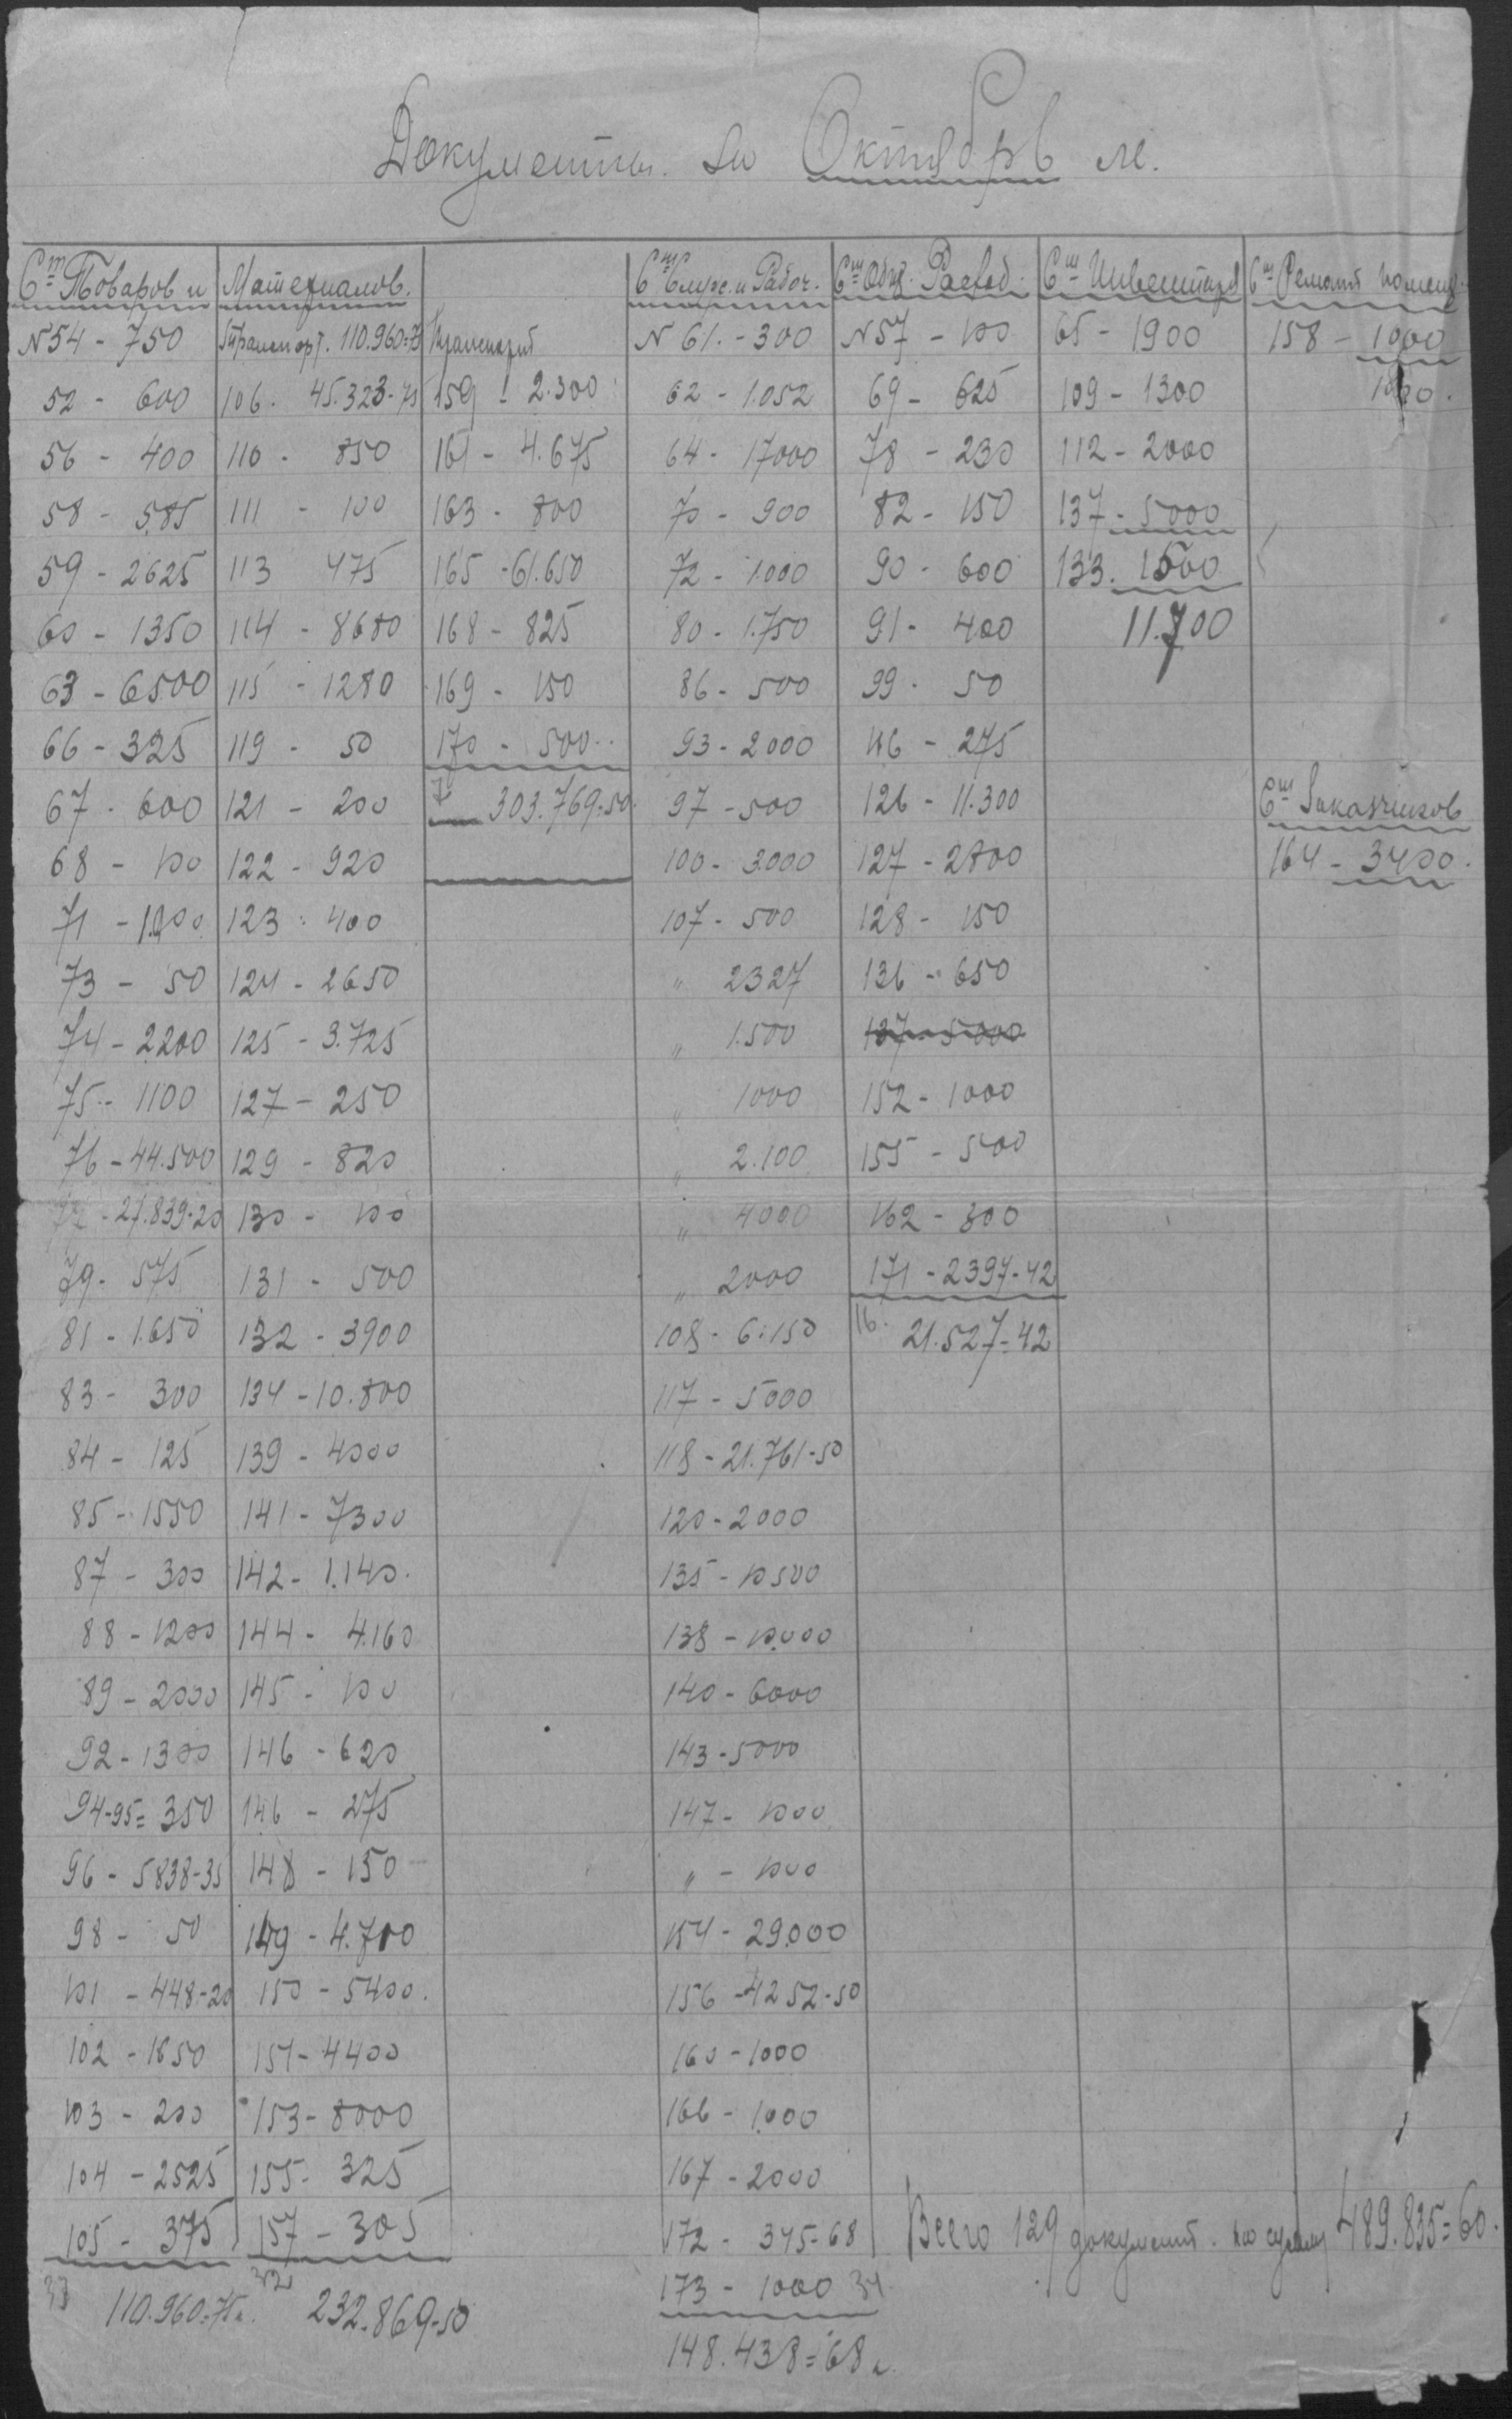 Документы за Октябрь м.
Ст Товаров и Материалов.
№54 - 750
52 - 600
56 - 400
58 - 585
59 - 2625
60 - 1350
63 - 6500
66 - 325
67 - 600
68 - 100
71 - 1.000
73 - 50
74 - 2200
75 - 1100
76 - 44.500
- 27.839-20
79 - 575
81 - 1.650
83 - 300
84 - 125
85 - 1550
87 - 300
88 - 1200
89 - 2000
92 - 1300
94-95 = 350
96 - 5838-35
98 - 50
101 - 448-20
102 - 1850
103 - 200
104 - 2525
105 - 375
33
110.960=75к.
Транспорт. 110.960=75
106 - 45.323-75
110 - 850
111 - 100
113 475
114 - 8680
115 - 1280
119 - 50
121 - 200
122 - 920
123 - 400
124 - 2650
125 - 3.725
127 - 250
129 - 820
130 - 100
131 - 500
132 - 3900
134 - 10.800
139 - 4000
141 - 7300
142 - 1.140
144 - 4.160
145 - 100
146 - 620
146 - 275
148 - 150
149 - 4.700
150 - 5400
151 - 4400
153 - 8000
155 - 325
157 - 305
232.869-50
Транспорт
159 - 2.300
161 - 4.675
163 - 800
165 - 61.650
168 - 825
169 - 150
170 - 500
303.769-50
Ст Служ. и Рабоч.
№ 61 - 300
62 - 1.052
64 - 17000
70 - 900
72 - 1.000
80 - 1.750
86 - 500
93 - 2000
97 - 500
100 - 3000
107 - 500
" 2327
" 1.500
" 1000
" 2.100
" 4000
" 2000
108 - 6.150
117 - 5000
118 - 21.761-50
120 - 2000
135 - 10500
138 - 10.000
140 - 6000
143 - 5000
147 - 1000
" - 1000
154 - 29.000
156 - 4252-50
160 - 1000
166 - 1.000
167 - 2000
172 - 345-68
173 - 1000 34
148.438=68к
Ст Общ. Расход.
№57 - 100
69 - 625
78 - 230
82 - 150
90 - 600
91 - 400
99 - 50
116 - 275
126 - 11.300
127 - 2800
128 - 150
136 - 650
137 - 5000
152 - 1000
155 - 500
162 - 300
171 - 2397-42
16.
21.527=42
Ст Инвентаря
65 - 1900
109 - 1300
112 - 2000
137 - 5000
133. 1500
11.700
Ст Ремонт помещ.
158 - 1000
1000.
Ст Заказчиков
164 - 3400.
Всего 129 документ. на сумму 489.835=60.